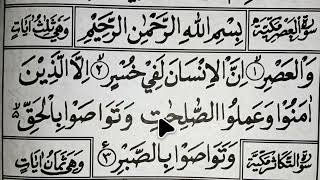 سُوْرَةُ الْعَصْرِ مَكِّيَّةٌ بِسْمِ اللّٰهِ الرَّحْمٰنِ الرَّحِيْمِ وَهِيَ ثَلٰثُ اٰيَاتٍ
وَالْعَصْرِ ۙ﴿۱﴾ اِنَّ الْاِنْسَانَ لَفِيْ خُسْرٍ ۙ﴿۲﴾ اِلَّا الَّذِيْنَ
اٰمَنُوْا وَعَمِلُوا الصّٰلِحٰتِ وَتَوَاصَوْا بِالْحَقِّ ۙ
وَتَوَاصَوْا بِالصَّبْرِ ﴿۳﴾
سُوْرَةُ التَّكَاثُرِ مَكِّيَّةٌ وَهِيَ ثَمَانُ اٰيَاتٍ